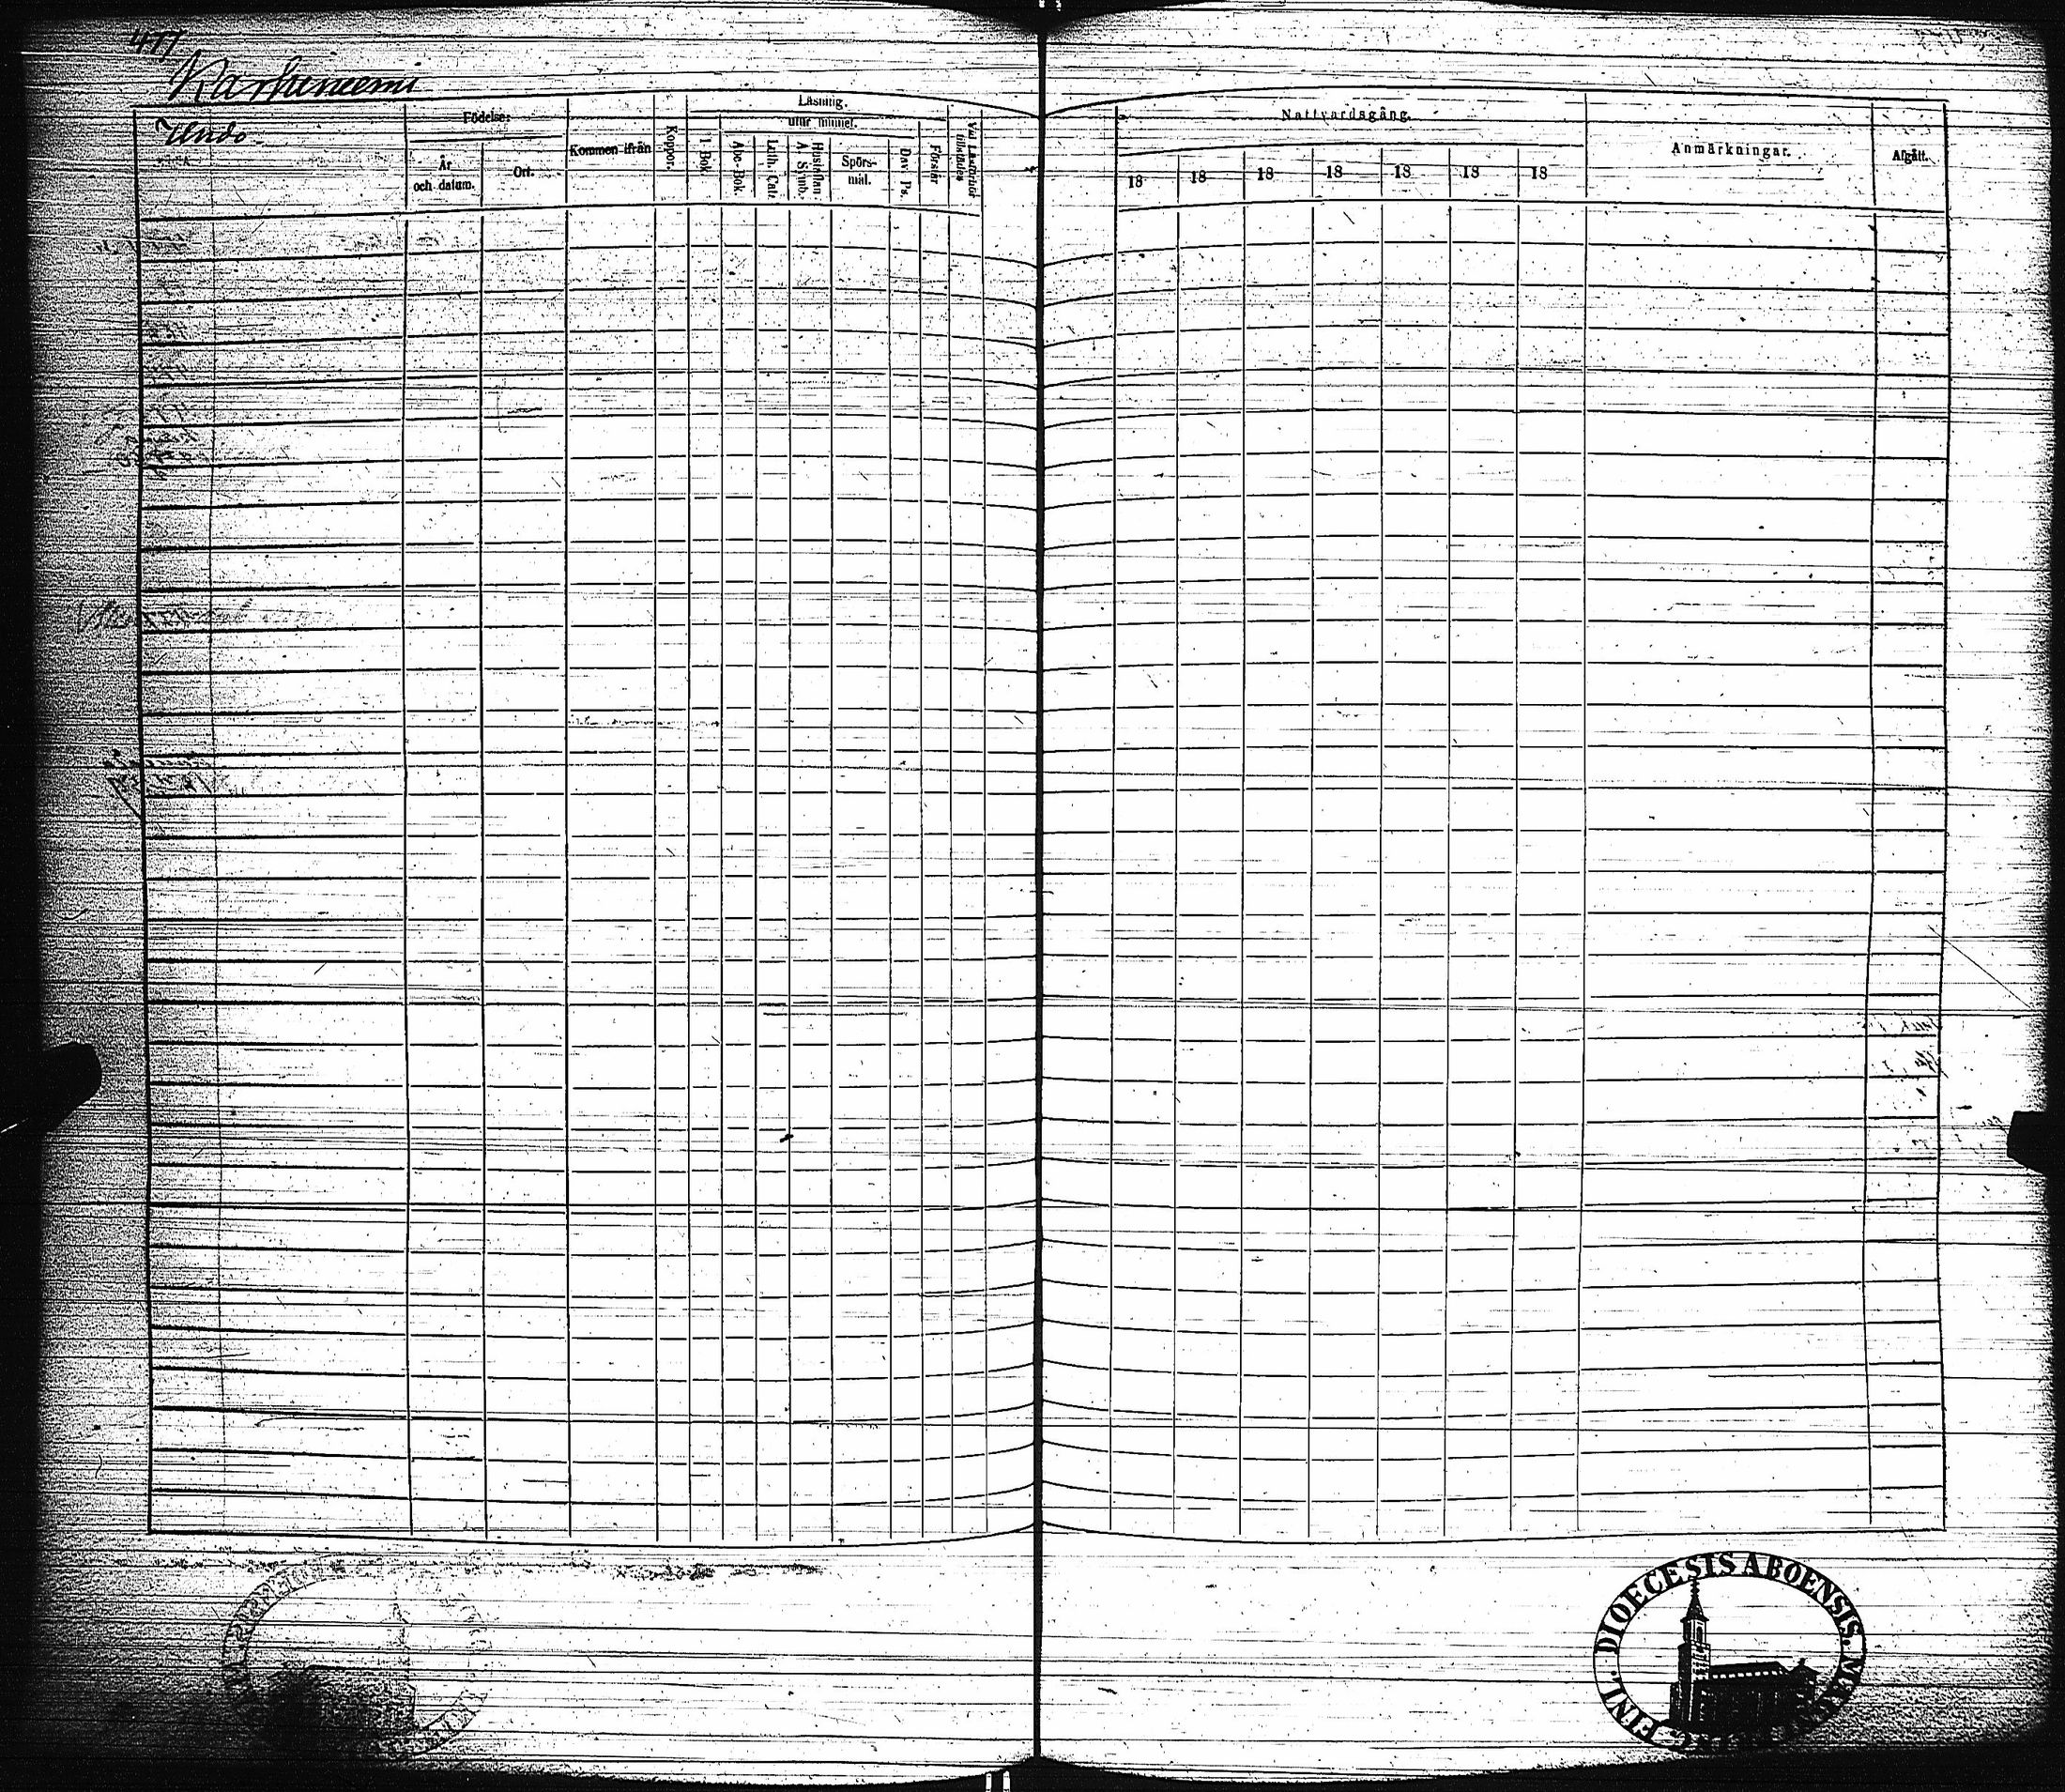 477
Karhuniemi
Uudo.
Födelse:
År och datum.
Ort.
Kommen ifrån
Koppor.
Läsning.
I Bok
utur minnet.
Abc-Bok.
Luth. Cat.
Hustaflan A. Symb.
Spörs-
mål.
Dav. Ps.
Förstår
Vid Läsförhör tillstädes
Nattvardsgång.
18 18 18 18 18 18 18
Anmärkningar.
Afgått.
DIOECESIS ABOENSIS.